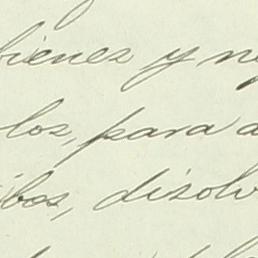 bienes y n
los, para a
ibos, disolv